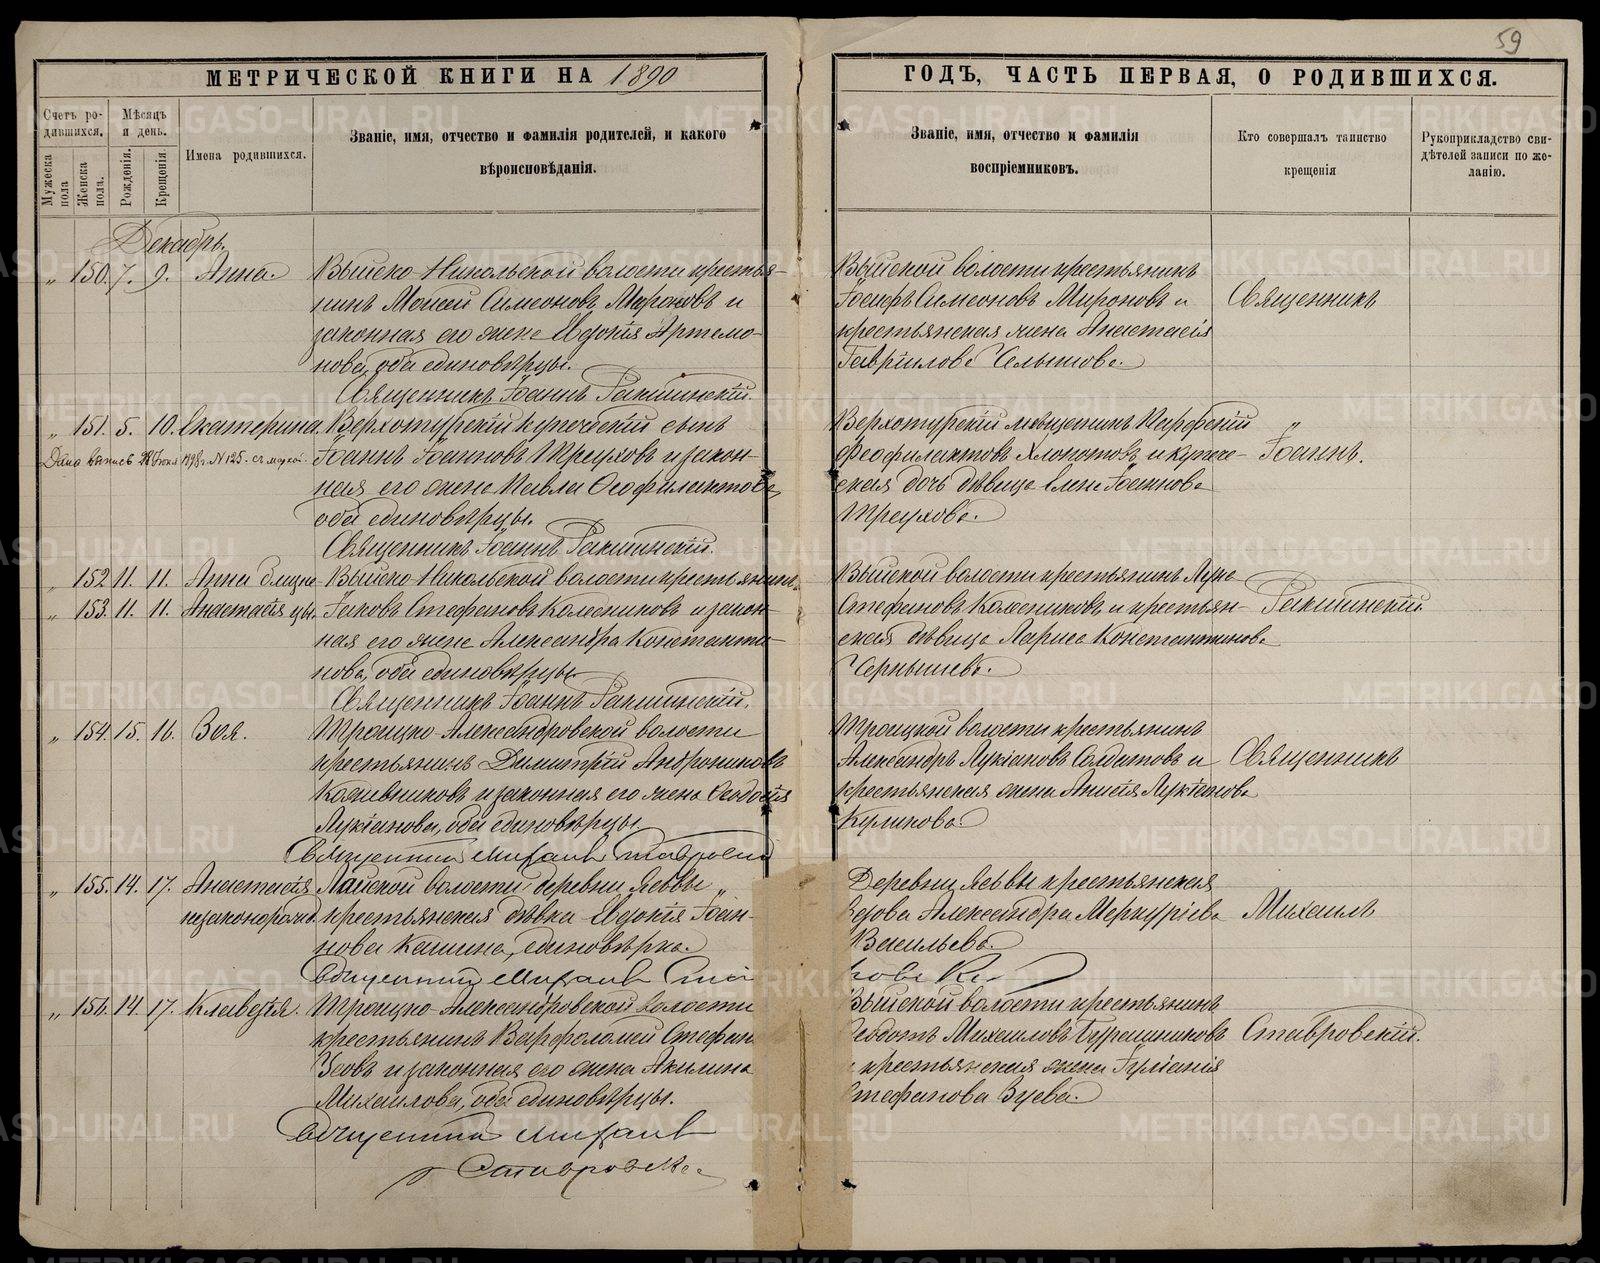 59
МЕТРИЧЕСКОЙ КНИГИ НА 1890
ГОДЪ, ЧАСТЬ ПЕРВАЯ, О РОДИВШИХСЯ.
Счетъ родившихся.
Мужеска пола
Женска пола.
Мѣсяцъ и день.
Рожденія.
Крещенія.
Имена родившихся.
Званіе, имя, отчество и фамилія родителей, и какого
вѣроисповѣданія.
Званіе, имя, отчество и фамилія
воспріемниковъ.
Кто совершалъ таинство
крещенія
Рукоприкладство сви-
дѣтелей записи по же-
ланію.
Декабрь.
„ 150. 7. 9. Анна.
Выйско-Никольской волости крестья-
нинъ Моисей Симеоновъ Мироновъ и
законная его жена Евдокія Артемо-
нова, оба единовѣрцы.
Священникъ Іоаннъ Ракшинскій.
Выйской волости крестьянинъ
Іосифъ Симеоновъ Мироновъ и
крестьянская жена Анастасія
Гавріилова Челышова.
Священникъ
„ 151. 5. 10. Екатерина.
Дана выпись 1898 г. № 125. съ маркой.
Верхотурскій купеческій сынъ
Іоаннъ Іоанновъ Треуховъ и закон-
ная его жена Павла Феофилактова,
оба единовѣрцы.
Священникъ Іоаннъ Ракшинскій.
Верхотурскій мѣщанинъ
Феофилактовъ Хлопотовъ и купече-
ская дочь дѣвица Елена Іоаннова
Треухова.
Іоаннъ.
„ 152. 11. 11. Анна близне-
„ 153. 11. 11. Анастасія цы.
Выйско-Никольской волости крестьянинъ
Іаковъ Стефановъ Колесниковъ и закон-
ная его жена Александра Константи-
нова, оба единовѣрцы.
Священникъ Іоаннъ Ракшинскій.
Выйской волости крестьянинъ Лука
Стефановъ Колесниковъ и крестьян-
ская дѣвица Лариса Константинова
Чернышева.
Ракшинскій.
„ 154. 15. 16. Зоя.
Троицко-Александровской волости
крестьянинъ Димитрій Андрониковъ
Кожевниковъ и законная его жена Феодосія
Лукіанова, оба единовѣрцы.
Священникъ Михаилъ Ставровскій
Троицкой волости крестьянинъ
Александръ Лукіановъ Солдатовъ и
крестьянская жена Анисія Лукіанова
Куликова.
Священникъ
„ 155. 14. 17. Анастасія
незаконорожд.
Лайской волости деревни Лёвы
крестьянская дѣвка Евдокія Іоан-
нова Кашина, единовѣрка.
Священникъ Михаилъ Ста
Деревни Лёвы крестьянская
вдова Александра Меркуріева
Васильева.
Михаилъ
„ 156. 14. 17. Клавдія.
Троицко-Александровской волости
крестьянинъ Варфоломей Стефан
Зуевъ и законная его жена Акилина
Михаилова, оба единовѣрцы.
Священникъ Михаилъ
Ставровскій
Выйской волости крестьянинъ
Ѳеодотъ Михаиловъ Бурашниковъ
и крестьянская жена Іуліанія
Стефанова Зуева.
Ставровскій.
METRIKI.GASO-URAL.RU